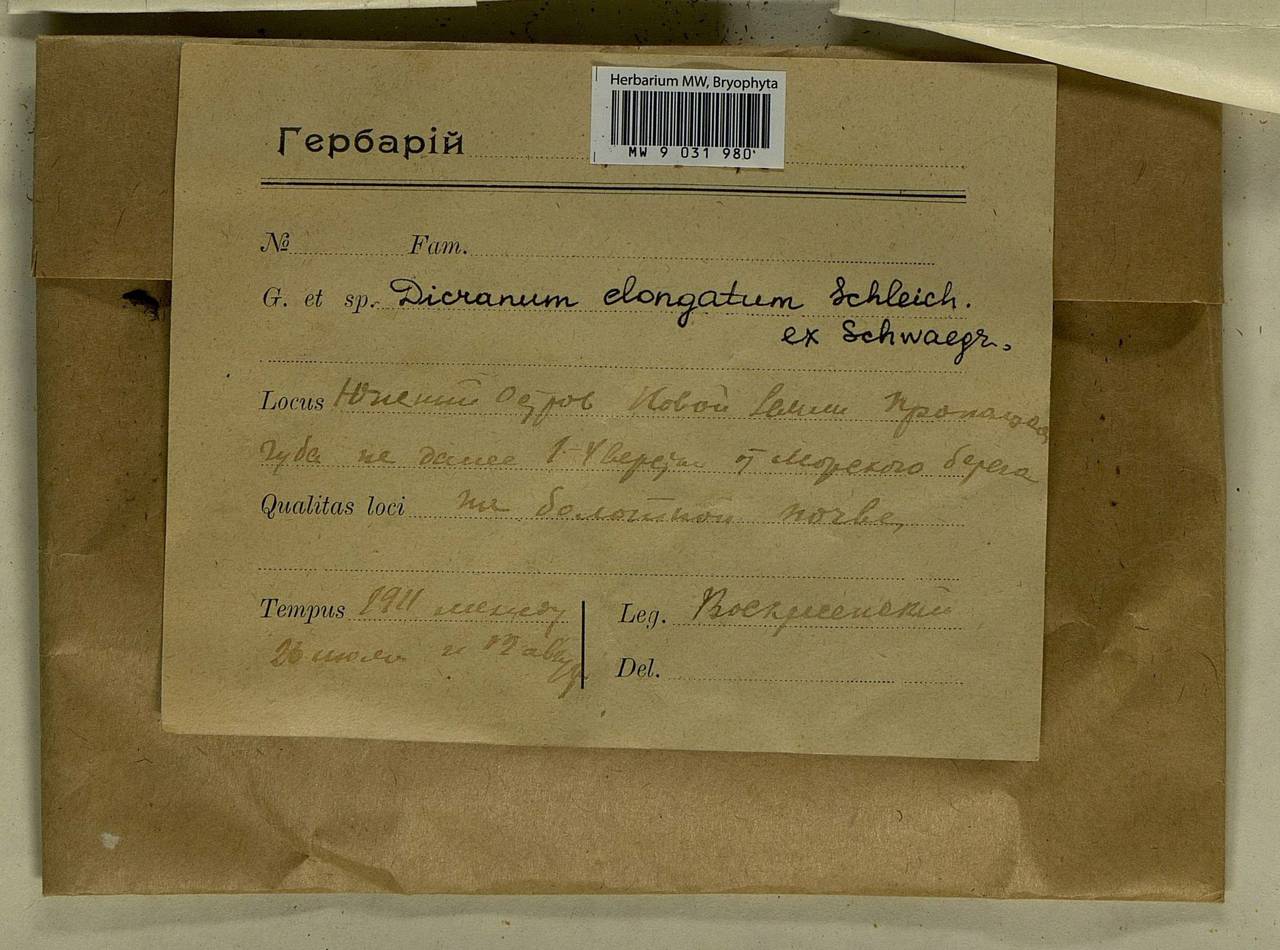 Herbarium MW, Bryophyta
MW 9 031 980
Гербарій
№ Fam.
G. et sp. Dicranum elongatum Schleich.
ex Schwaegr.
Locus Южный Остров Новой Земли Пропащая
губа не далее 1-4 верст от морского берега
Qualitas loci на болотной почве,
Tempus 1911 между
26 июля и 12 авгу
Leg. Воскресенский
Del.